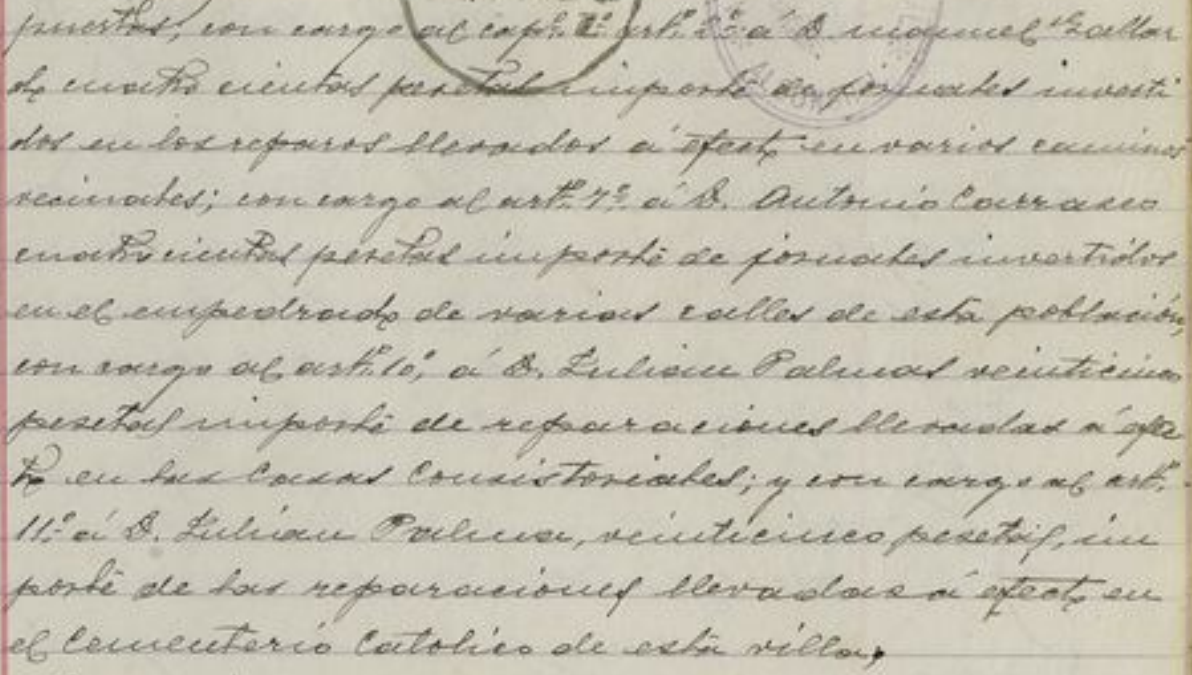 puertas, con cargo al capº. 1º. artº. 2º. á D. Manuel Gallar
do cuatro cientas pesetas importe de jornales inverti
dos en los reparos llevados á efecto en varios caminos
vecinales; con cargo al artº. 7º. á D. Antonio Carrasco
cuatrocientas pesetas importe de jornales invertidos
en el empedrado de varias calles de esta población;
con cargo al artº. 10º, á D. Julian Palmas veinticinco
pesetas importe de reparaciones llevadas á efec
to en las Casas Consistoriales; y con cargo al artº.
11º. á D. Julian Palma, veinticinco pesetas, im
porte de las reparaciones llevadas á efecto en
el Cementerio Católico de esta villa,